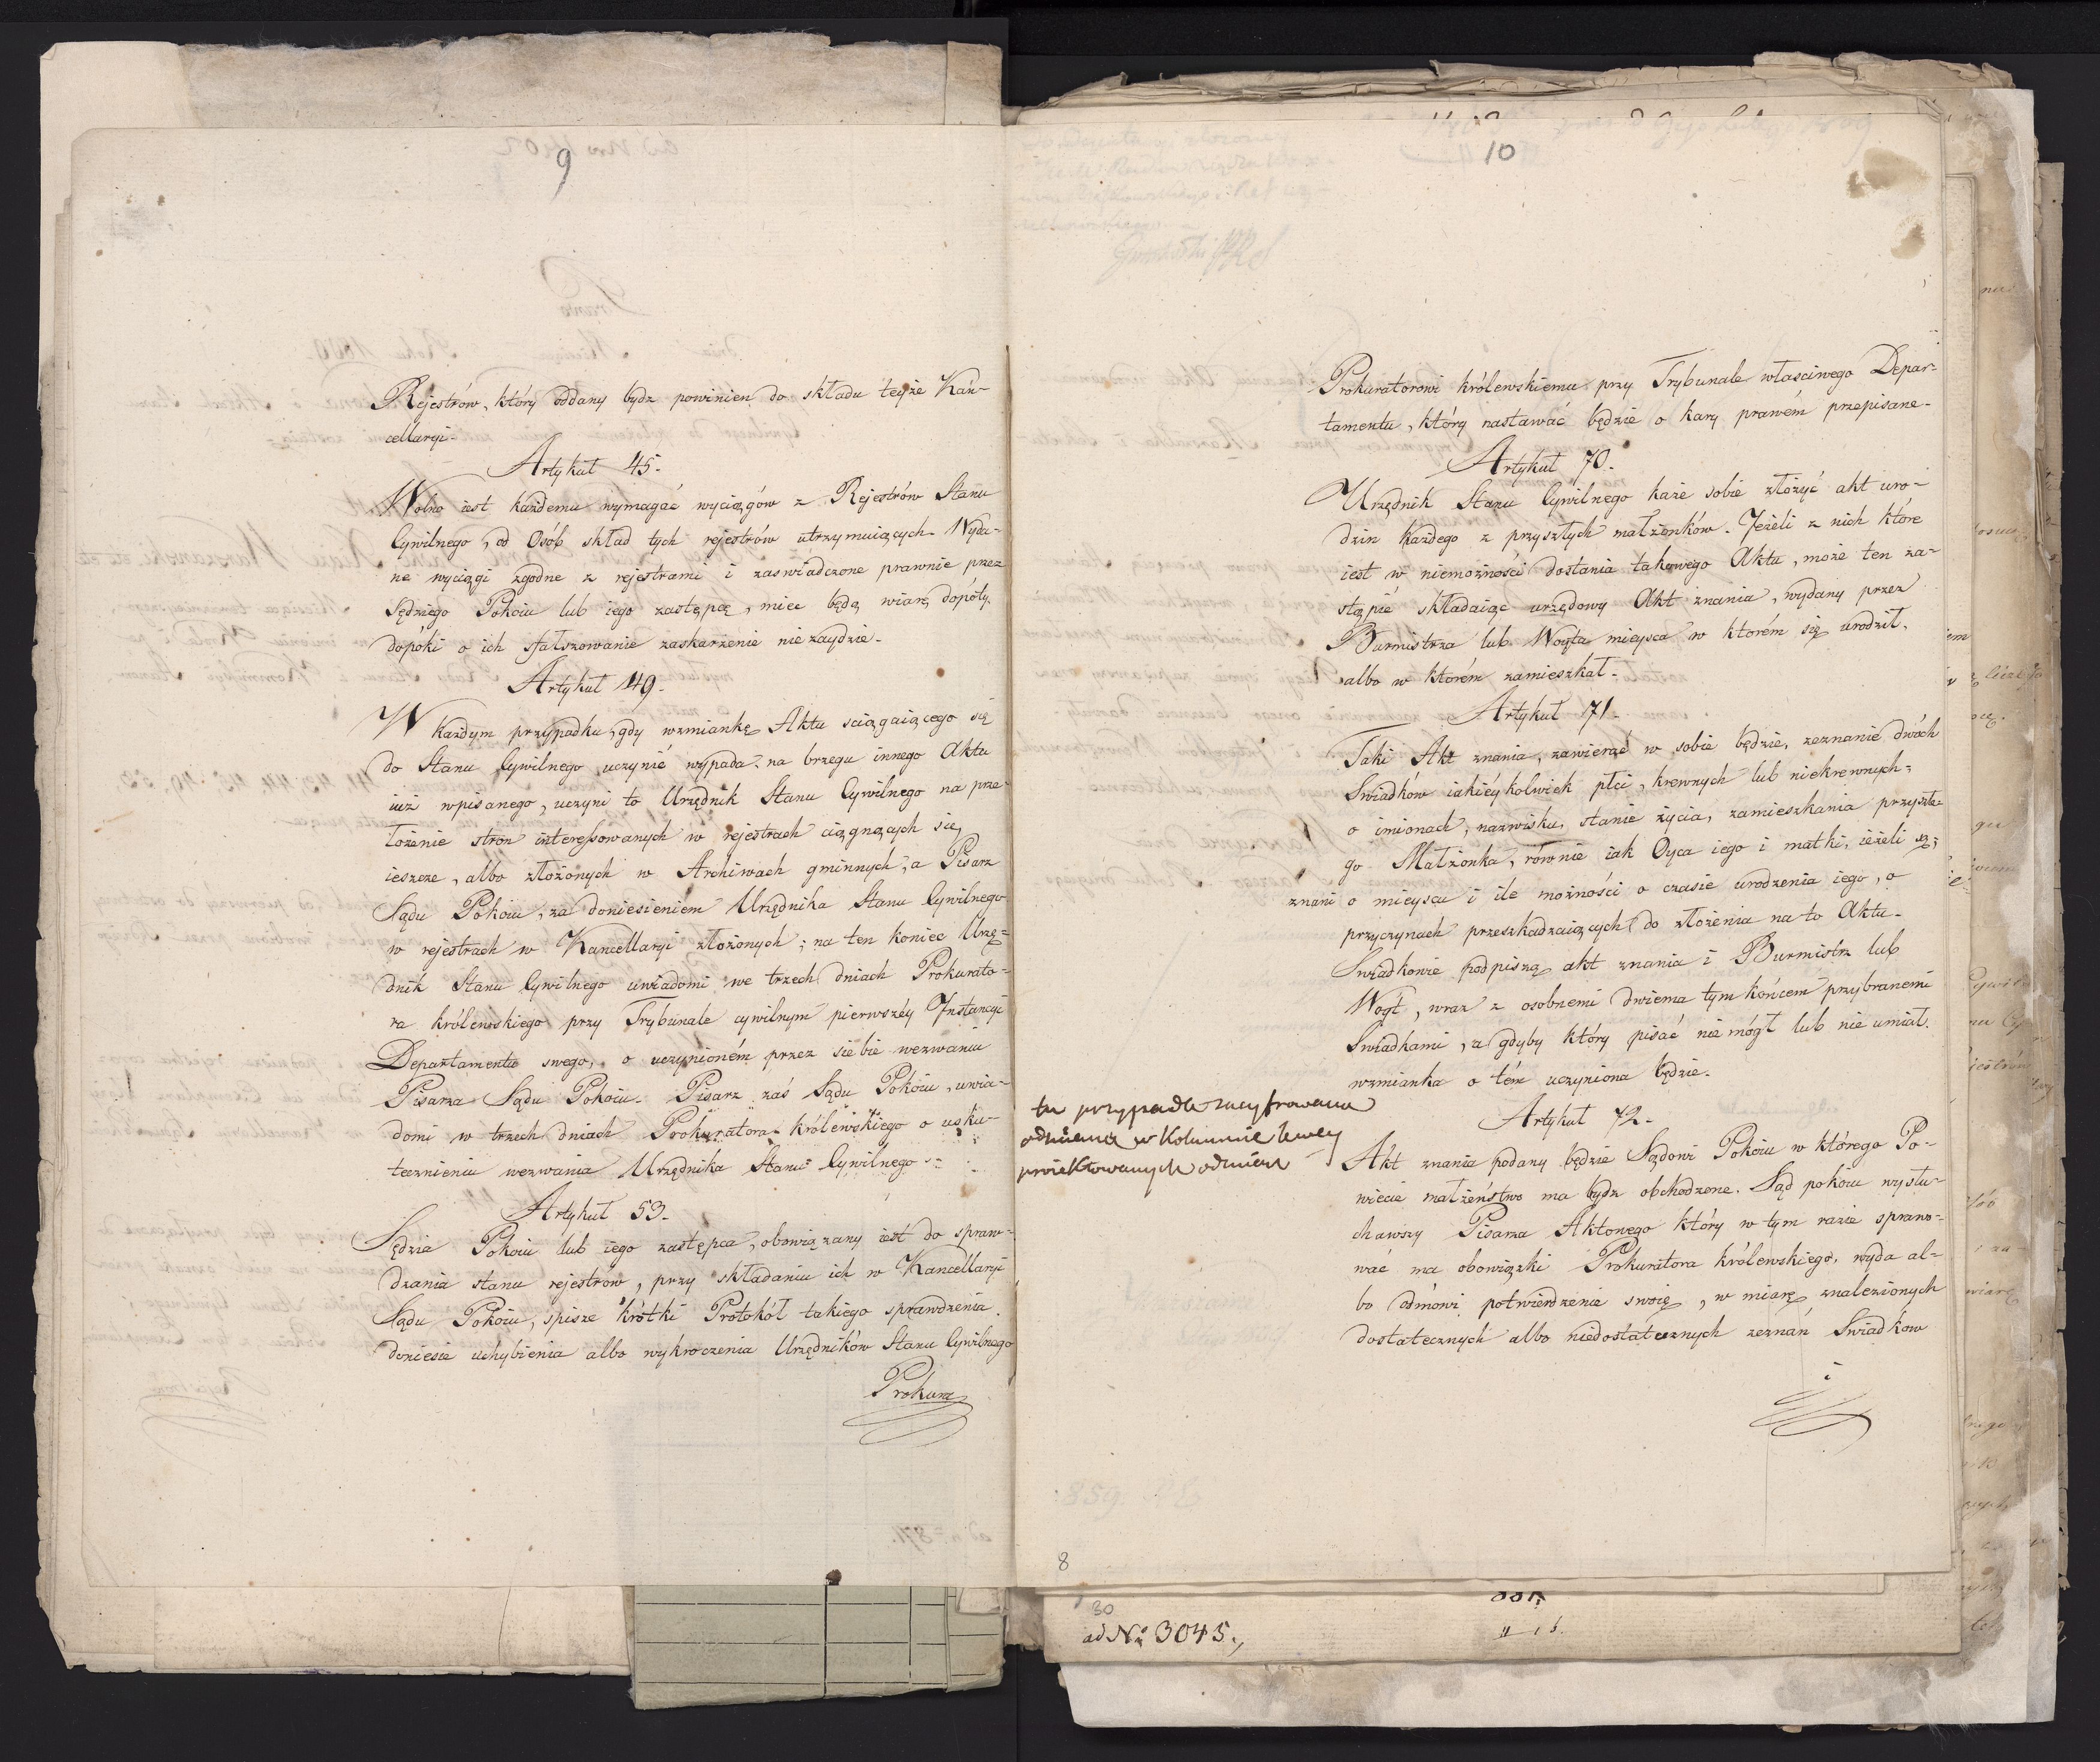 9
Rejestrów, który oddany bydz powinien do składu teyże Kan-
cellaryi.
Artykuł 45.
Wolno iest każdemu wymagać wyciągów z Rejestrów Stanu
Cywilnego, od Osób skład tych rejestrów utrzymuiących. Wyda-
ne wyciągi zgodne z rejestrami i zaswiadczone prawnie przez
Sędziego Pokoiu lub iego zastępcę, miec będą wiarę dopóty,
dopóki o ich sfałszowanie zaskarżenie nie zaydzie.
Artykuł 49.
W każdym przypadku, gdy wzmiankę Aktu sciągaiącego się
do Stanu Cywilnego uczynić wypada na brzegu innego Aktu
iuż wpisanego, uczyni to Urzędnik Stanu Cywilnego na prze-
łożenie stron interessowanych w rejestrach ciągnących się
ieszcze, albo złożonych w Archiwach gminnych, a Pisarz
Sądu Pokoiu, za doniesieniem Urzędnika Stanu Cywilnego
w rejestrach w Kancellaryi złożonych; na ten koniec Urzę-
dnik Stanu Cywilnego uwiadomi we trzech dniach Prokurato-
ra królewskiego przy Trybunale cywilnym pierwszéy Instancyi
Departamentu swego, o uczynioném przez siebie wezwaniu
Pisarza Sądu Pokoiu. Pisarz zaś Sądu Pokoiu, uwia-
domi w trzech dniach Prokuratora królewskiego o usku-
tecznieniu wezwania Urzędnika Stanu Cywilnego
Artykuł 53.
Sędzia Pokoiu lub iego zastępca, obowiązany iest do spraw-
dzania stanu rejestrów, przy składaniu ich w Kancellaryi
Sądu Pokoiu, spisze krótki Protokół takiego sprawdzenia.
doniesie uchybienia albo wykroczenia Urzędników Stanu Cywilnego
Prokura
10
Prokuratorowi królewskiemu przy Trybunale własciwego Depar-
tamentu, który nastawać będzie o kary prawém przepisane.
Artykuł 70.
Urzędnik Stanu Cywilnego każe sobie złożyć akt uro-
dzin każdego z przyszłych małżonków. Jeżeli z nich które
iest w niemożności dostania takowego Aktu, może ten za-
stąpić składaiąc urzędowy Akt znania, wydany przez
Burmistrza lub Woyta mieysca w którém się urodził,
albo w którém zamieszkał.
Artykuł 71.
Taki Akt znania, zawierać w sobie będzie, zeznanie dwóch
Swiadków iakiéykolwiek płci, krewnych lub niekrewnych,
o imionach, nazwisku, stanie życia, zamieszkania przyszłe-
go Małżonka, równie iak Oyca iego i matki, ieżeli są
znani o mieyscu i ile możności o czasie urodzenia iego, o
przyczynach przeszkadzaiących do złożenia na to Aktu.
Swiadkowie podpiszą akt znania i Burmistrz lub
Wogt, wraz z osobnemi dwiema tym końcem przybranemi
Swiadkami, a gdyby który pisać nie mógł lub nie umiał,
wzmianka o tém uczyniona będzie.
tu przypadla zacyfrowana
odmiana w Kolumnie lewey
proiektowanych odmian
Artykuł 72.
Akt znania podany będzie Sądowi Pokoiu w którego Po-
wiecie małżeństwo ma bydz obchodzone. Sąd pokoiu wysłu-
chawszy Pisarza Aktowego który w tym razie sprawo-
wać ma obowiązki Prokuratora królewskiego, wyda al-
bo odmówi potwierdzenie swoię, w miarę znalezionych
dostatecznych albo niedostatecznych zeznań Swiadków
i
8
30
ad No 3045.